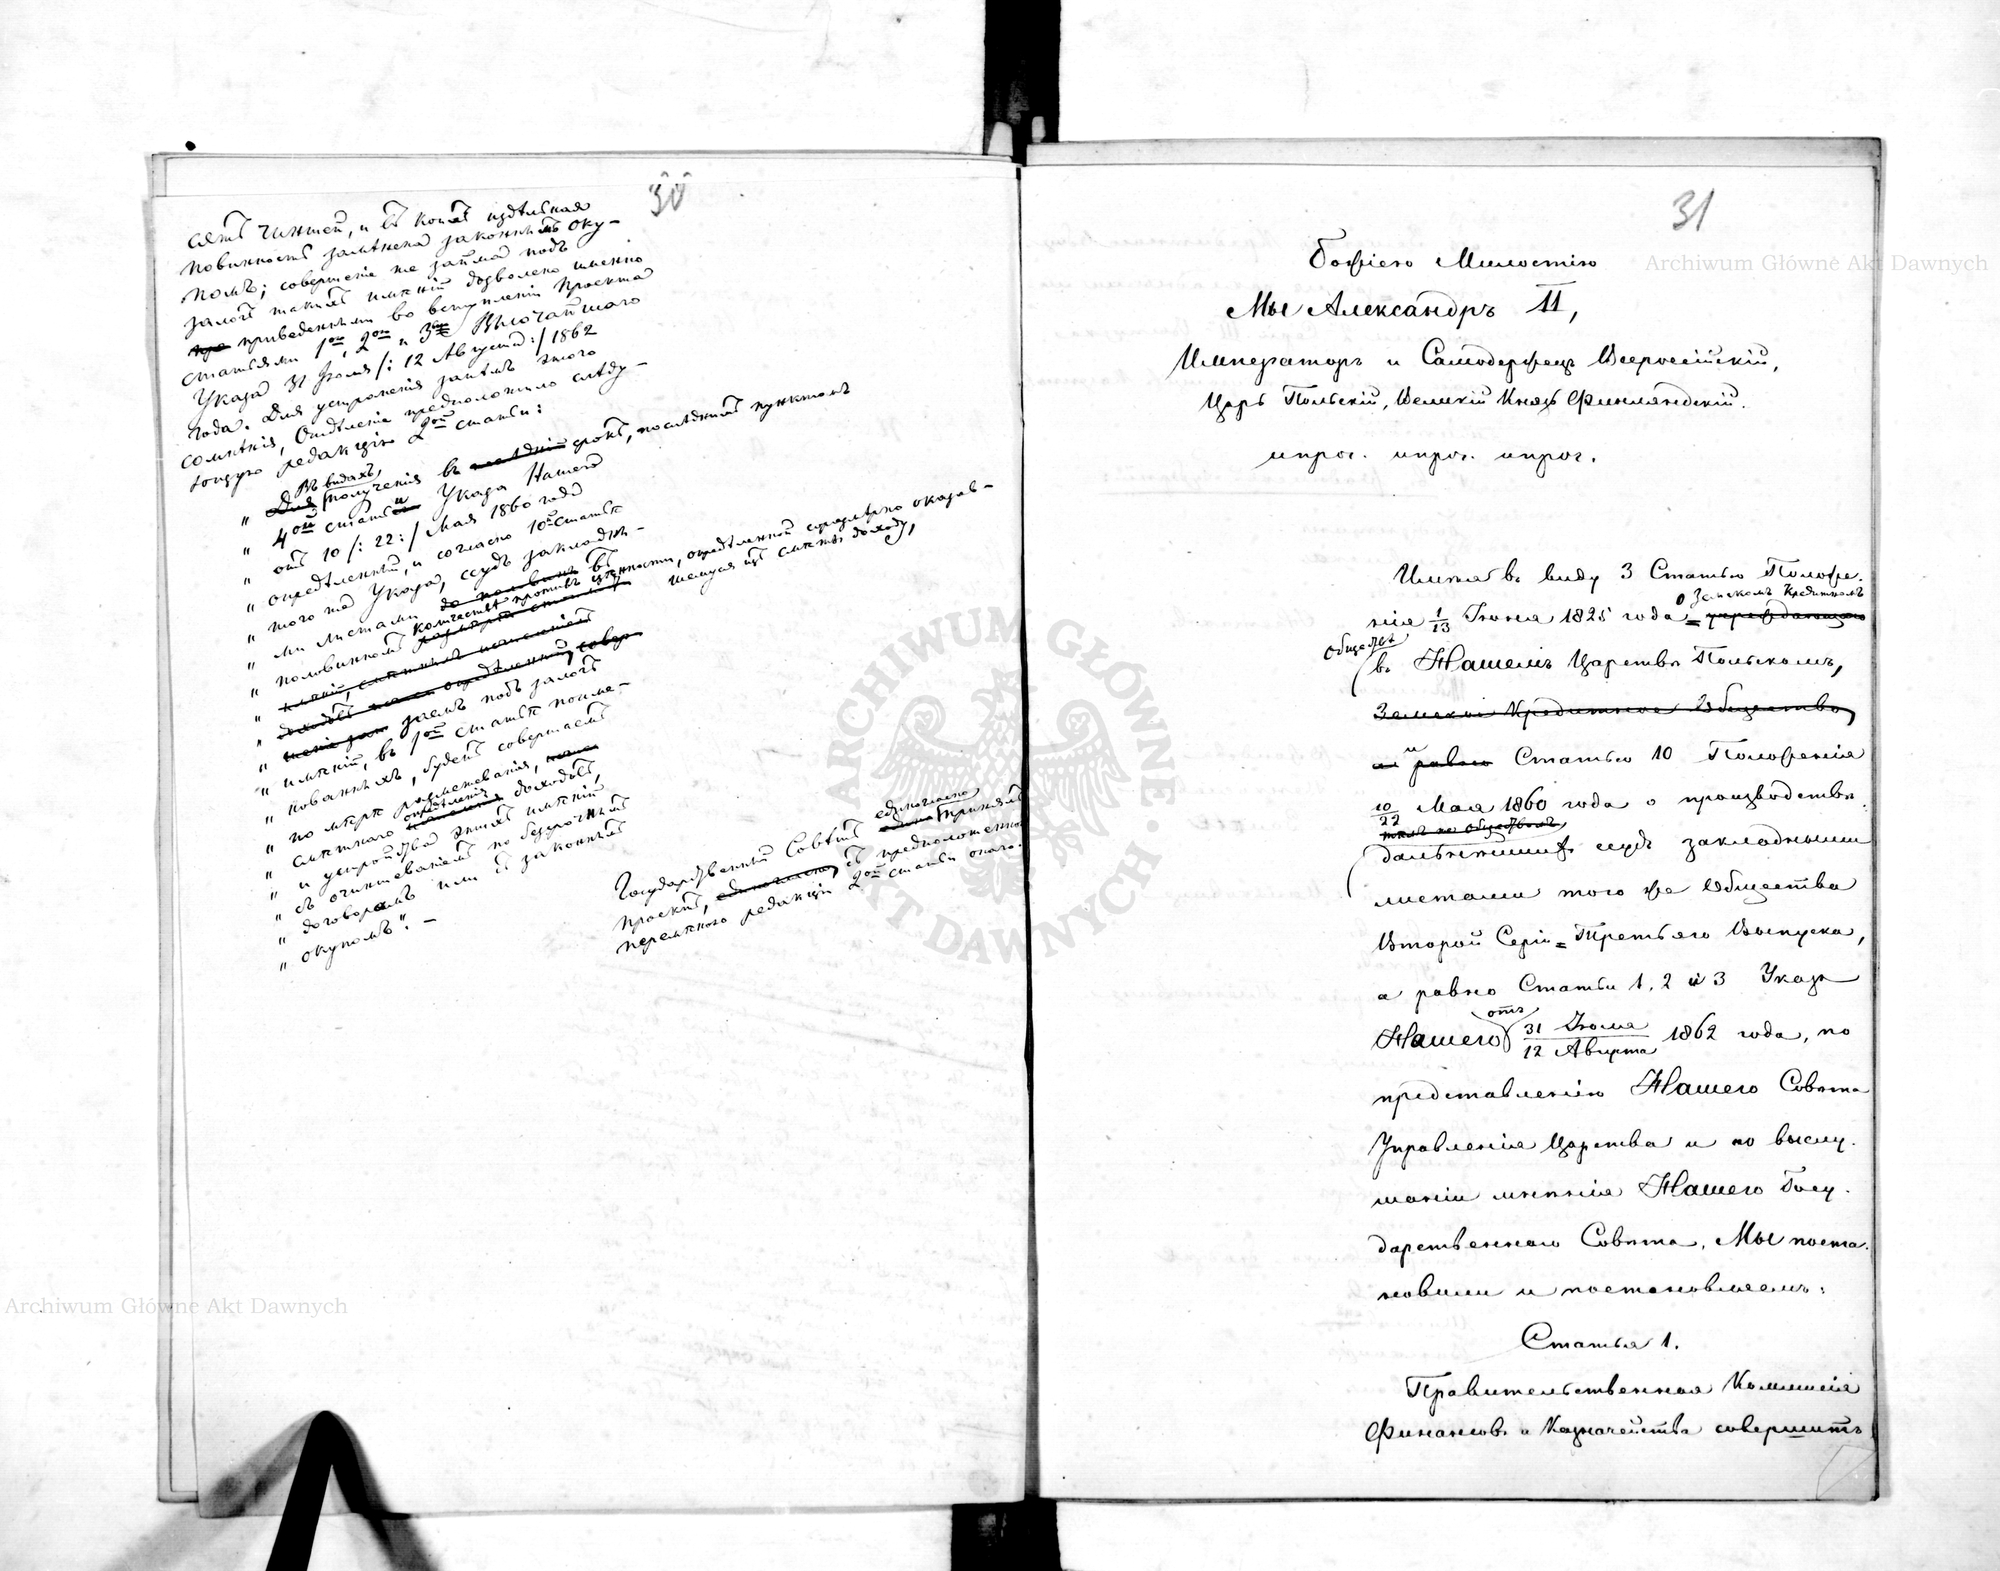 30
сятъ чиншей, и въ коихъ издѣльная
повинность замѣнена законнымъ оку-
помъ; совершеніе же займа подъ
залогъ такихъ имѣній дозволено именно
приведенными во вступленіи проекта
статьями 1ою, 2ою и 3ею Высочайшаго
Указа 31 Іюля /: 12 Августа :/ 1862
года. Для устраненія затѣмъ этого
сомнѣнія, Отдѣленіе предположило слѣду-
ющую редакцію 2ой статьи:
" Въ видахъ
" Для полученія въ послѣдній срокъ, послѣднимъ пунктомъ
" 4ой статьи Указа Нашего
" отъ 10 /: 22 :/ Мая 1860 года
" опредѣленный, и согласно 10ой статьѣ
" того же Указа, ссудъ закладны-
" ми листами до половины въ
" половинномъ количествѣ противъ цѣнности, опредѣленной соразмѣрно оказав-
шемуся изъ смѣты доходу,
" заемъ подъ залогъ
" имѣній, въ 1ой статьѣ поиме-
" нованныхъ, будетъ совершаемъ
" по мѣрѣ размежеванія,
" смѣтнаго опредѣленія доходовъ,
" и устройства этихъ имѣній
" съ очиншеваніемъ по безсрочнымъ
" договорамъ или съ законнымъ
" окупомъ". —
Государственный Совѣтъ единогласно принялъ
проектъ, единогласно, съ предположенною
перемѣною редакціи 2ой статьи онаго.
31
Божіею Милостію
Мы Александръ II,
Императоръ и Самодержецъ Всероссійскій,
Царь Польскій, Великій Князь Финляндскій.
ипроч. ипроч. ипроч.
Имѣя въ виду 3 Статью Положе-
о Земскомъ Кредитномъ
нія 1/13 Іюня 1825 года учреждающаго
Обществѣ
въ Нашемъ Царствѣ Польскомъ,
Земское Кредитное Общество,
и равно Статью 10 Положенія
10/22 Мая 1860 года о производствѣ
тѣмъ же обществомъ
дальнѣйшихъ ссудъ закладными
листами того же Общества
Второй Серіи = Третьяго Выпуска,
а равно Статьи 1, 2 и 3 Указа
Нашего отъ 31 Іюля / 12 Августа 1862 года, по
представленію Нашего Совѣта
Управленія Царства и по выслу-
шаніи мнѣнія Нашего Госу-
дарственнаго Совѣта, Мы поста-
новили и постановляемъ:
Статья 1.
Правительственная Коммисія
Финансовъ и Казначейства совершитъ
Archiwum Główne Akt Dawnych
Archiwum Główne Akt Dawnych
ARCHIWUM GŁÓWNE AKT DAWNYCH